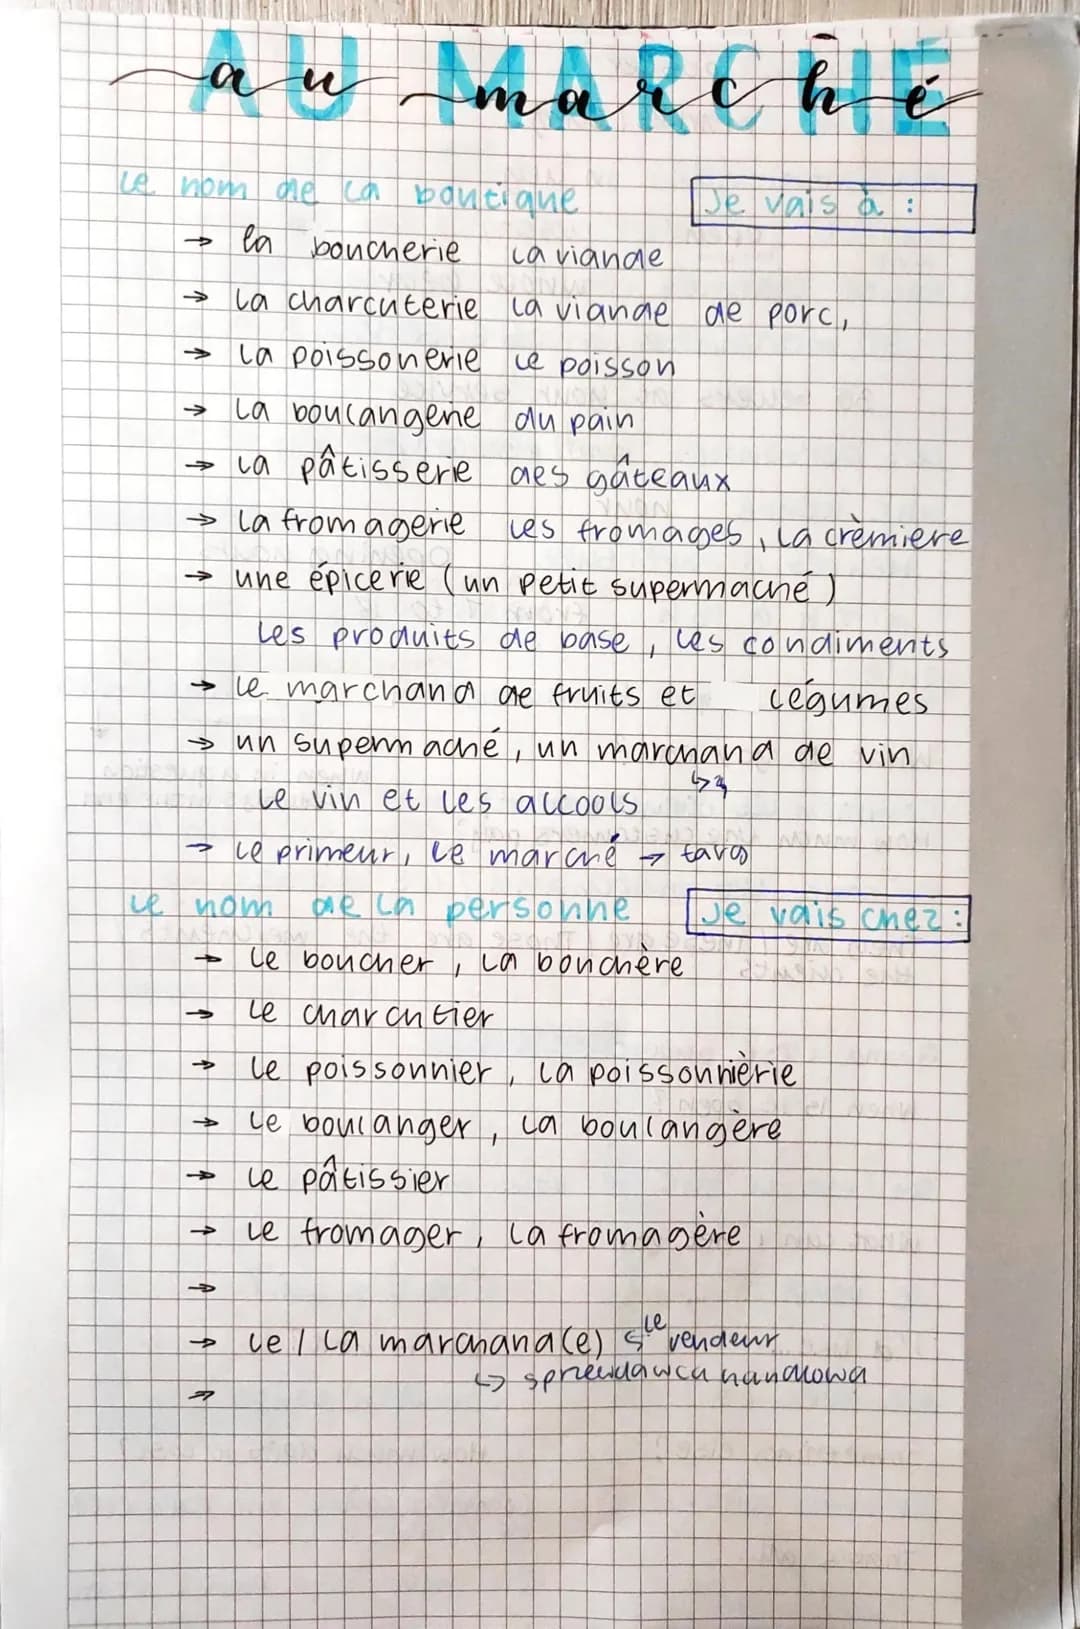 AU MARCHÉ
au marché
Le nom de la boutique Je vais à :
→ la boucherie la viande
→ la charcuterie la viande de porc,
→ la poissonerie le poisson
→ la boulangerie du pain
→ la pâtisserie des gâteaux
→ la fromagerie les fromages, la crèmiere
→ une épicerie (un petit supermaché)
les produits de base, les condiments
→ le marchand de fruits et légumes
→ un supermaché, un marchand de vin
le vin et les alcools
→ le primeur, le marché → targ
le nom de la personne Je vais chez :
→ le boucher, la bouchère
→ le charcutier
→ le poissonnier, la poissonnièrie
→ le boulanger, la boulangère
→ le pâtissier
→ le fromager, la fromagère
→
→ le / la marchand(e) le vendeur
↳ sprzedawca handlowa
→